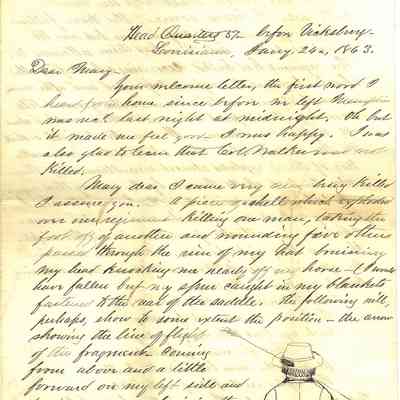 Head Quarters 57 before Vicksburg.
Louisiana, Jany 24th, 1863.
Dear Mary.
Your welcome letter, the first word I
heard from home since before we left Memphis
was rec'd last night at midnight. Oh but
it made me feel good I was happy. I was
also glad to learn that Col. Walker was not
Killed.
Mary dear I came very near being Killed
I assure you. A piece of shell which exploded
over our regiment Killing one man, taking the
foot off of another and wounding five others
passed through the rim of my hat bruising
my head Knocking me nearly off my horse - (I would
have fallen but my spur caught in my blankets
fastened to the rear of the saddle. The following will,
perhaps, show to some extent the position - the arrow
showing the line of flight
of the fragment coming
from above and a little
forward on my left side and